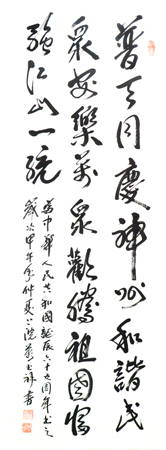 普天同慶神州和諧民
衆安樂萬衆歡騰祖國富
強江山一統
為中華人民共和國誕辰六十五周年書之
歲次甲午年仲夏書